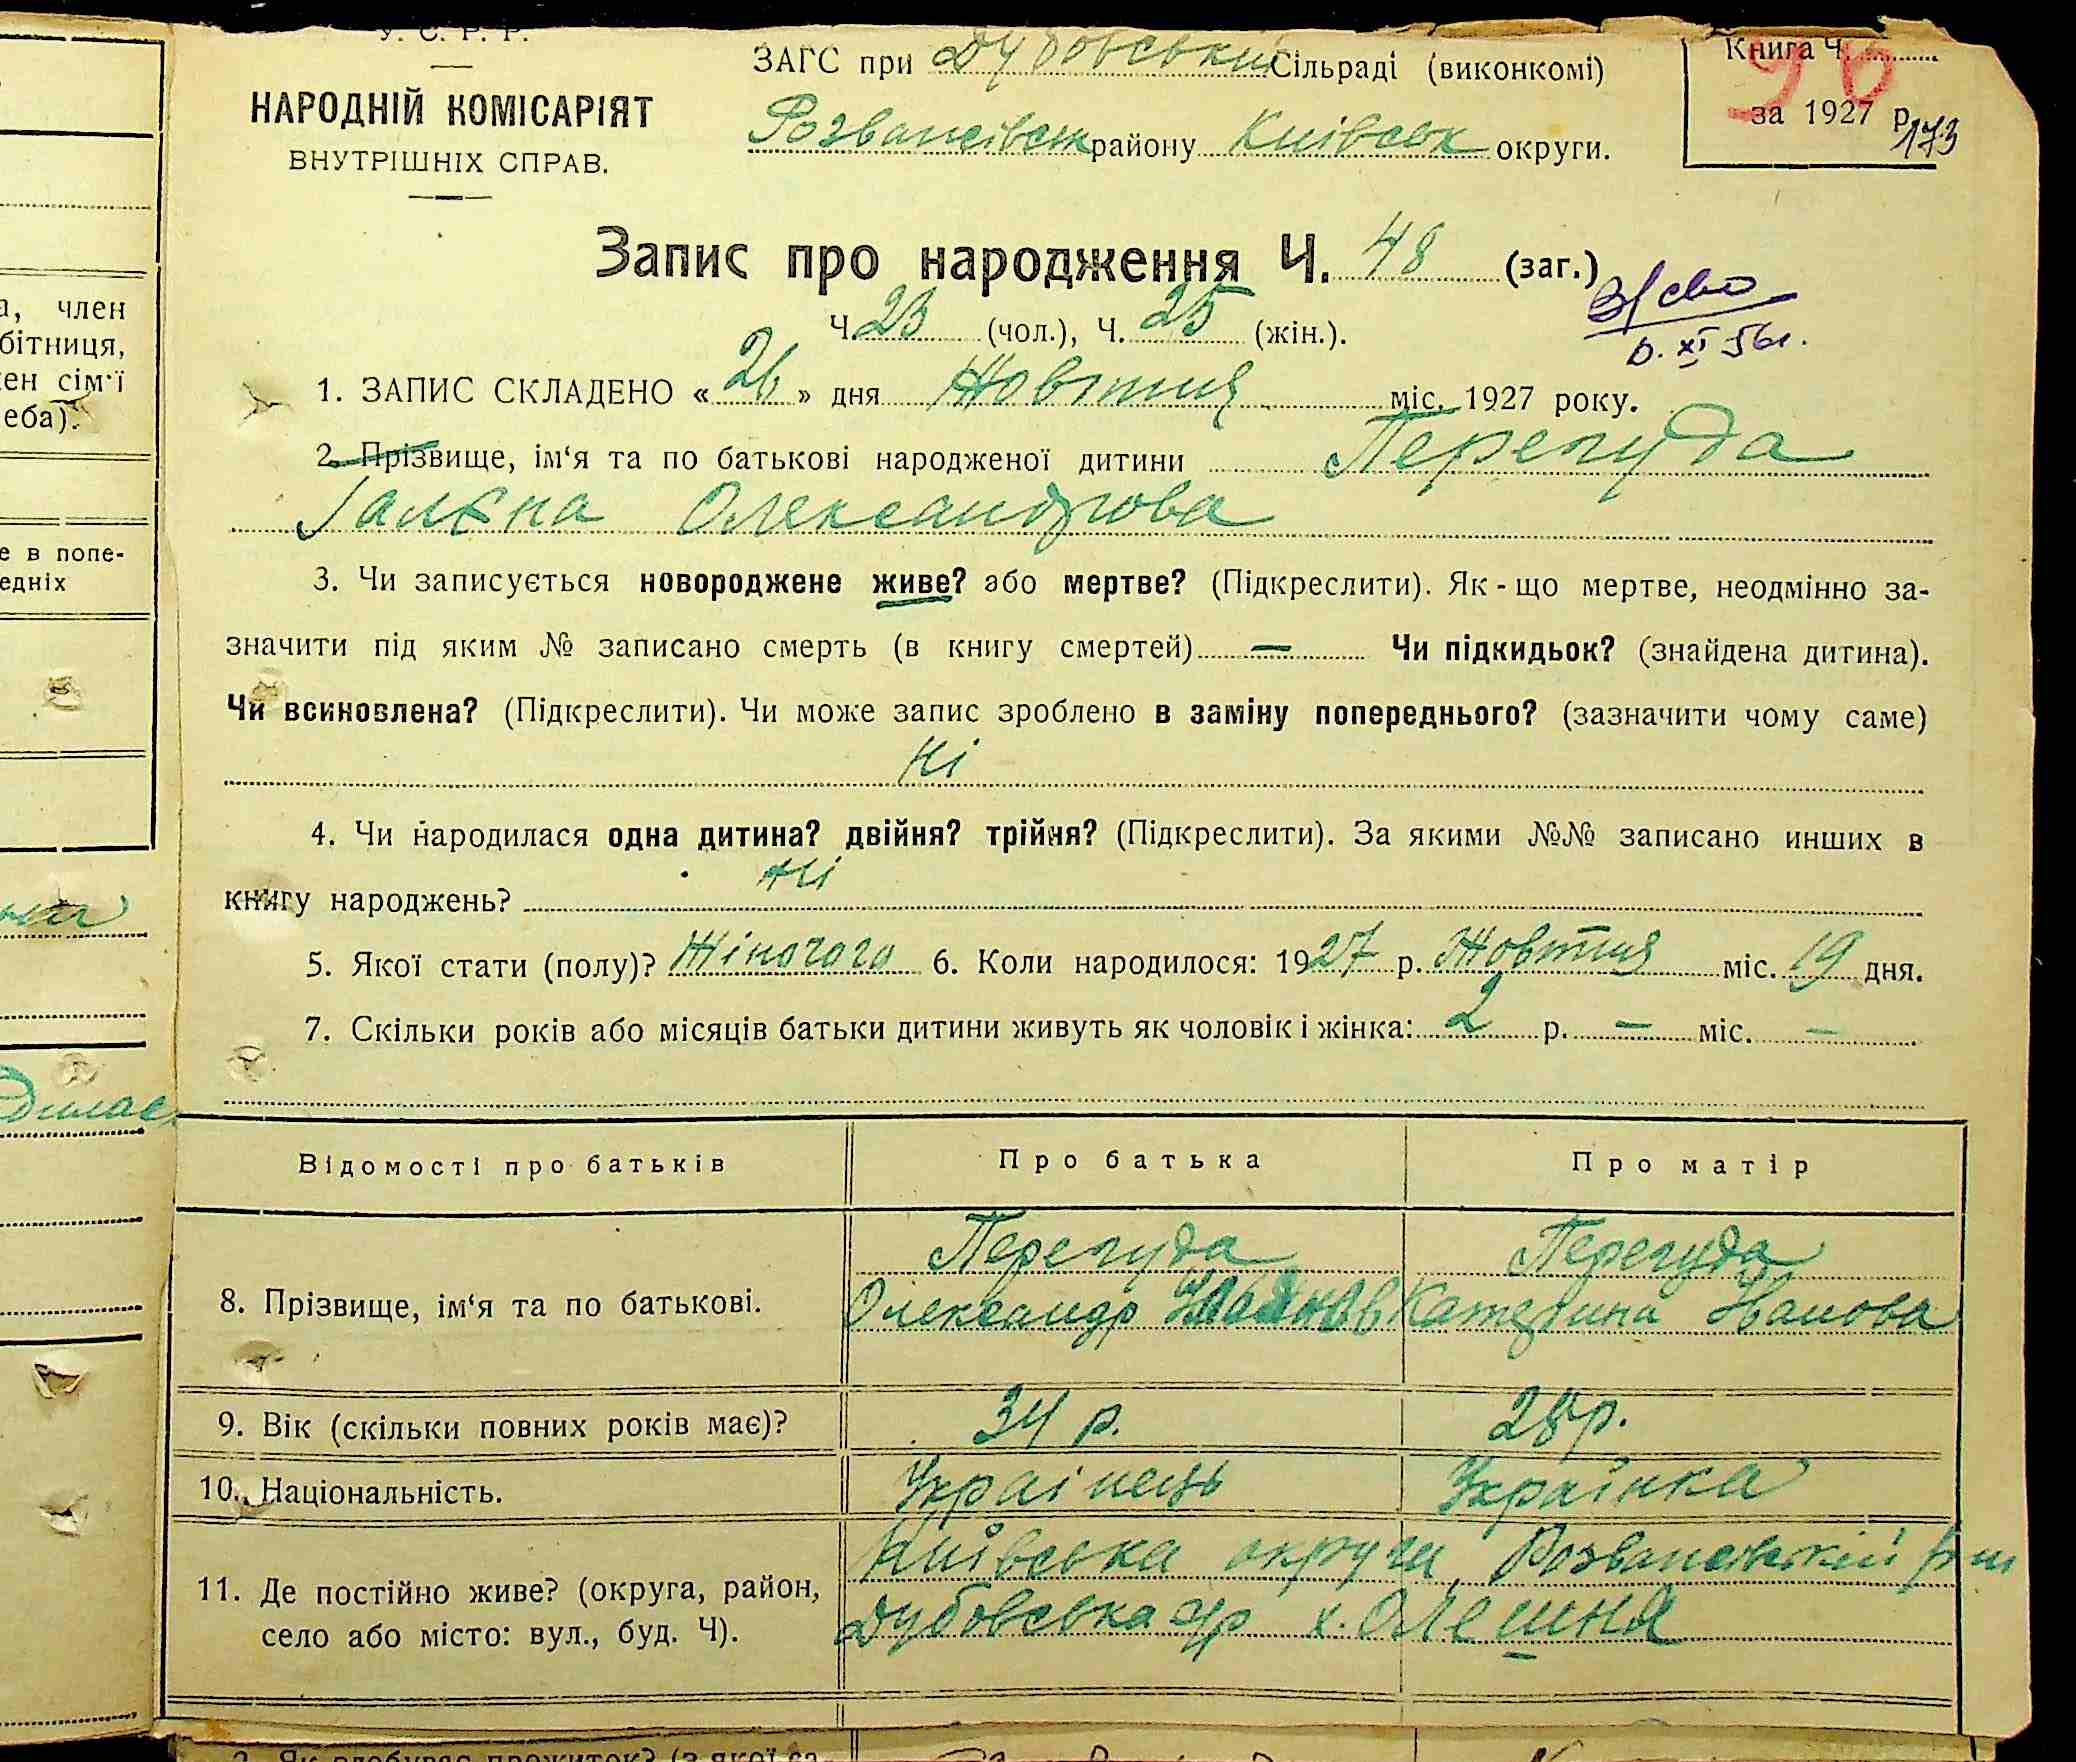 У. С. Р. Р.
НАРОДНІЙ КОМІСАРІЯТ
ВНУТРІШНІХ СПРАВ.
ЗАГС при Дубовський Сільраді (виконкомі)
Розважівськ району Київськ округи.
Книга Ч.
96
за 1927 р.
173
Запис про народження Ч. 48 (заг.)
Ч. 23 (чол.), Ч. 25 (жін.).
XI 56г.
1. ЗАПИС СКЛАДЕНО « 26 » дня Жовтня міс. 1927 року.
2. Прізвище, ім‘я та по батькові народженої дитини Перегуда
Галєна Олександрова
3. Чи записується новороджене живе? або мертве? (Підкреслити). Як - що мертве, неодмінно за-
значити під яким № записано смерть (в книгу смертей) — Чи підкидьок? (знайдена дитина).
Чи всиновлена? (Підкреслити). Чи може запис зроблено в заміну попереднього? (зазначити чому саме)
Ні
4. Чи народилася одна дитина? двійня? трійня? (Підкреслити). За якими №№ записано инших в
книгу народжень? Ні
5. Якої стати (полу)? Жіночого 6. Коли народилося: 1927 р. Жовтня міс. 19 дня.
7. Скільки років або місяців батьки дитини живуть як чоловік і жінка: 2 р. — міс. —
Відомості про батьків Про батька Про матір
8. Прізвище, ім‘я та по батькові. Перегуда Перегуда
Олександр Катерина Иванова
9. Вік (скільки повних років має)? 34 р. 28 р.
10. Національність. Українець Українка
11. Де постійно живе? (округа, район, село або місто: вул., буд. Ч). Київська округи, Розважевській
Дубовська с/р х. Олешня
а, член
бітниця,
ен сім‘ї
еба).
е в попе-
едніх